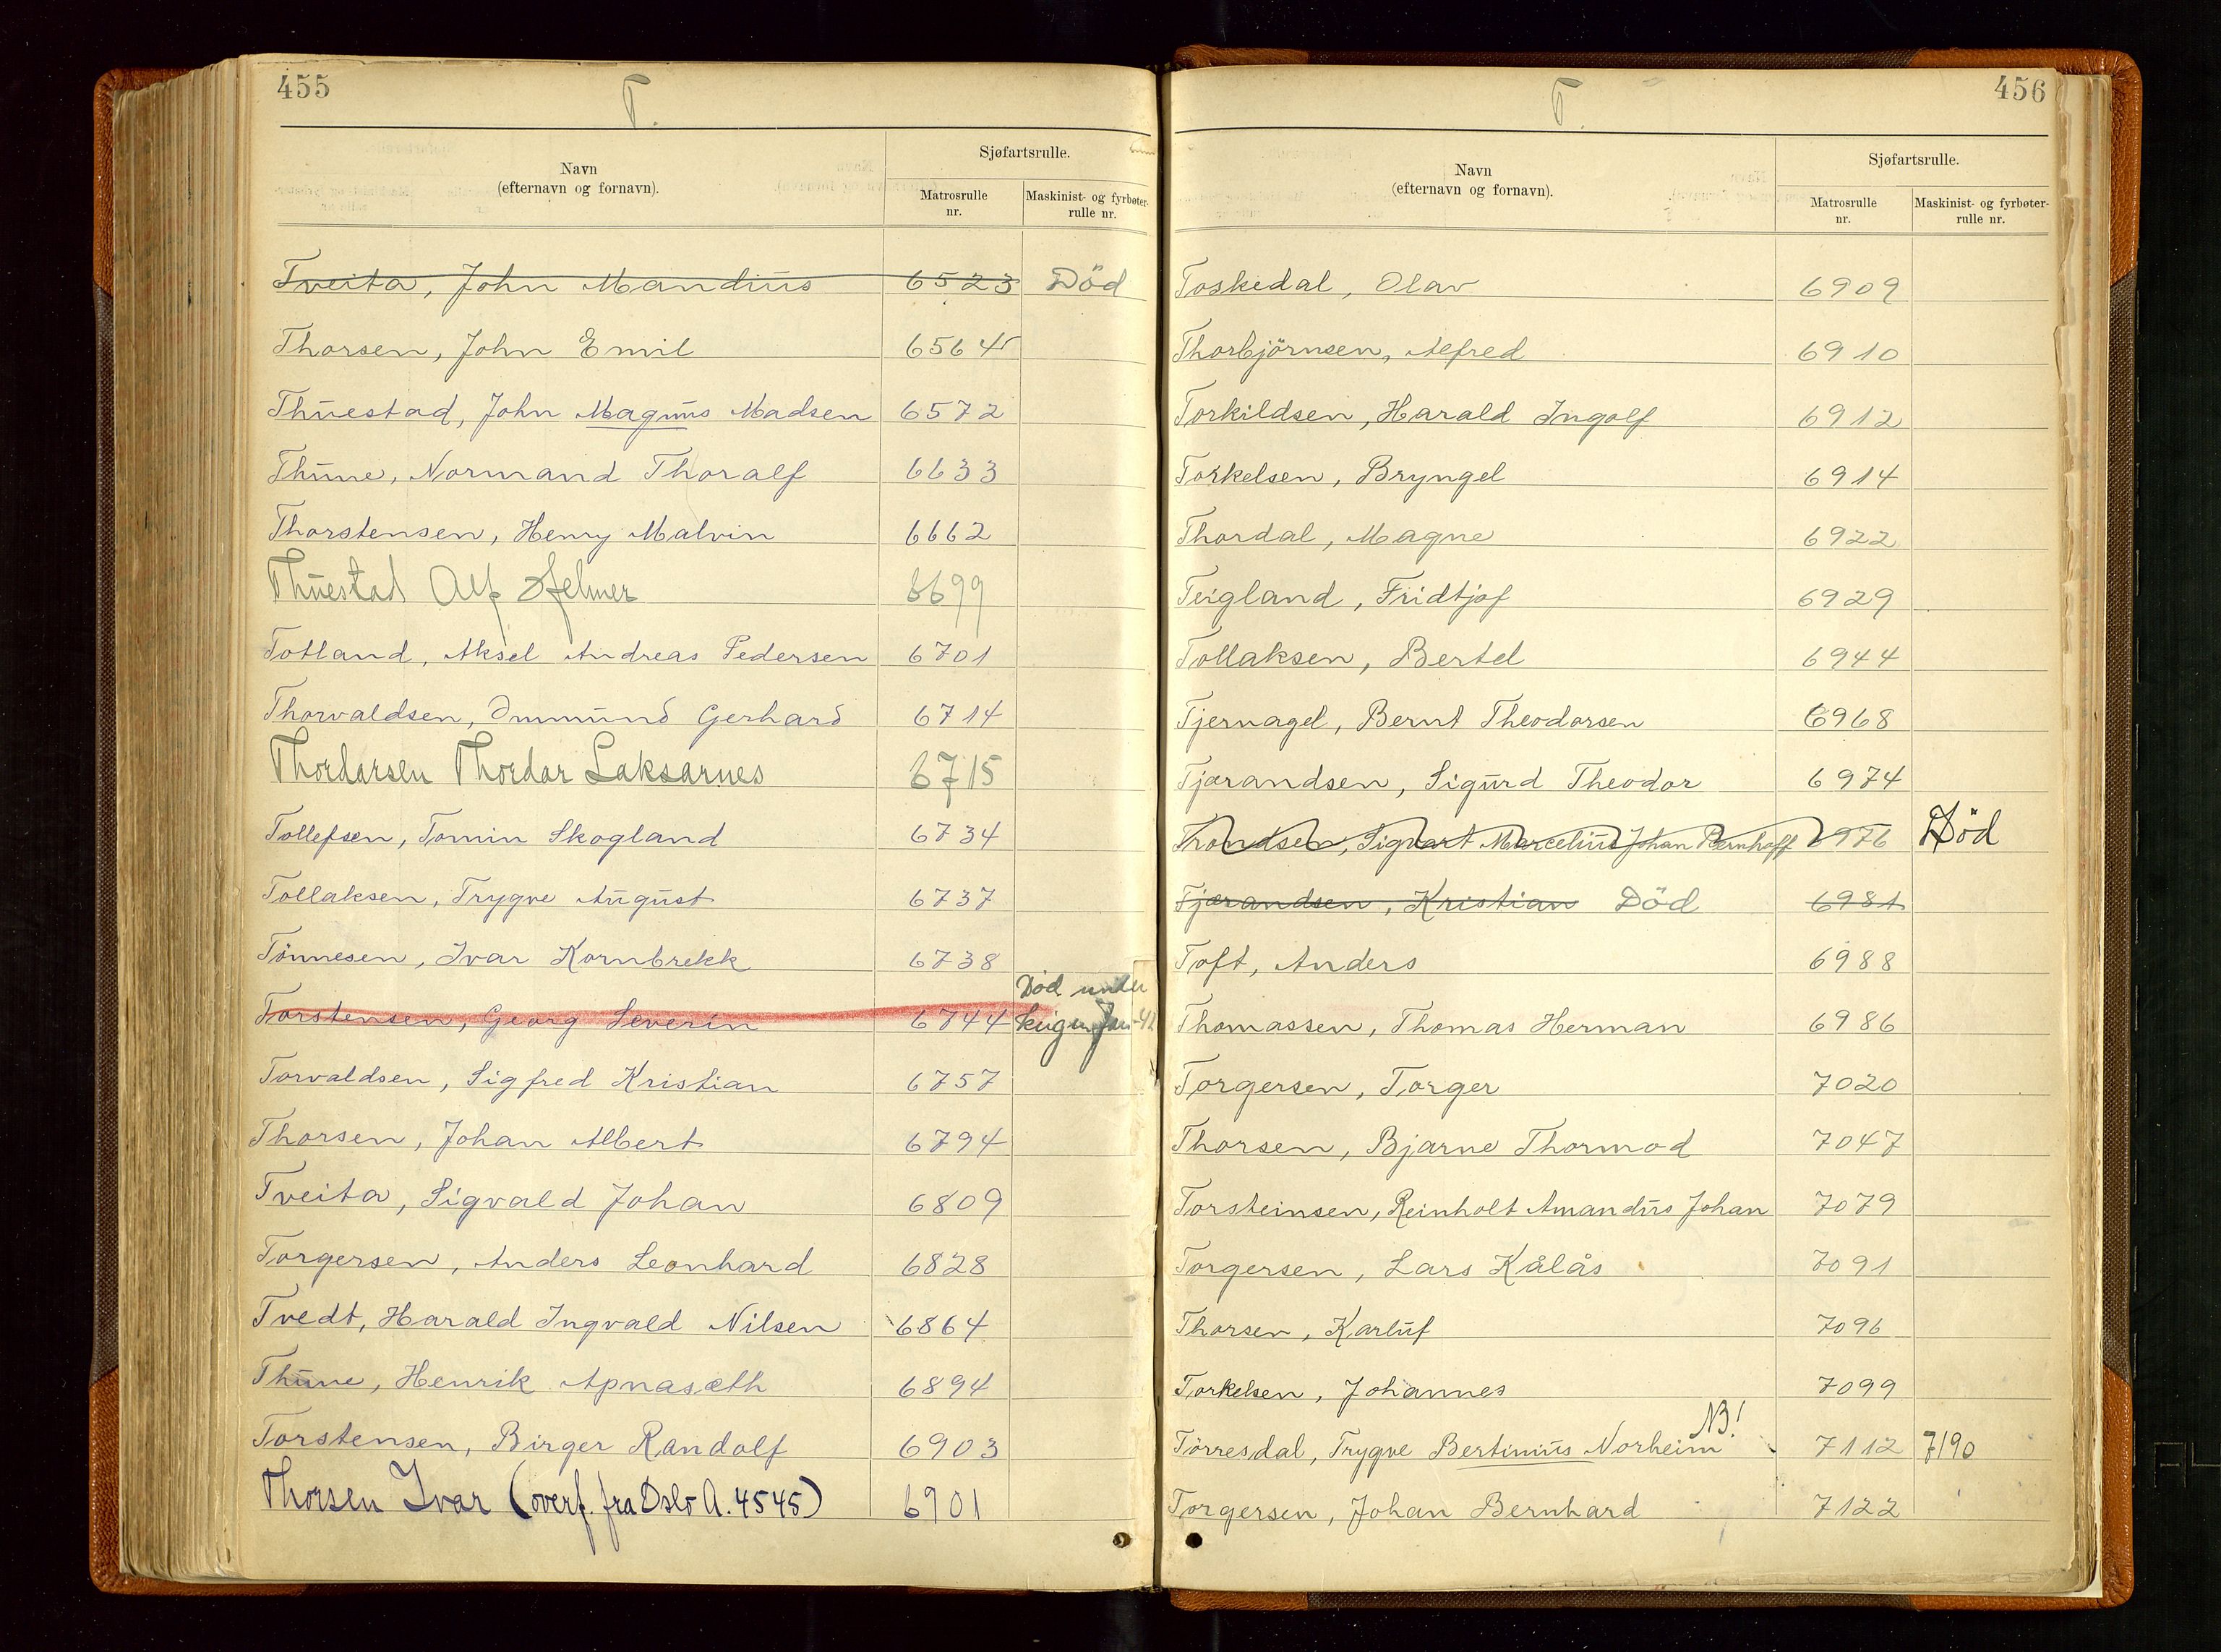 455
T.
Navn
(efternavn og fornavn).
Sjøfartsrulle.
Matrosrulle
nr.
Maskinist- og fyrbøter-
rulle nr.
Tveita, John Mandius 6523 Död
Thorsen, John Emil 6564
Thuestad, John Magnus Madsen 6572
Thune, Normand Thoralf 6633
Thorstensen, Henry Malvin 6662
Thuestad Alf Helmer 6699
Totland, Aksel Andreas Pedersen 6701
Thorvaldsen, Ommund Gerhard 6714
Thordarsen Thordar Laksarnes 6715
Tollefsen, Tomin Skogland 6734
Tollaksen, Trygve August 6737
Tönnesen, Ivar Kornbrekk 6738
Torstensen, Georg Severin 6744 Död under
krigen
Torvaldsen, Sigfred Kristian 6757
Thorsen, Johan Albert 6794
Tveita, Sigvald Johan 6809
Torgersen, Anders Leonhard 6828
Tvedt, Harald Ingvald Nilsen 6864
Thune, Henrik Apnasæth 6894
Torstensen, Birger Randolf 6903
Thorsen Ivar (overf. fra Oslo A. 4545) 6901
456
T.
Navn
(efternavn og fornavn).
Sjøfartsrulle.
Matrosrulle
nr.
Maskinist- og fyrbøter-
rulle nr.
Toskedal, Olav 6909
Thorbjörnsen, Alfred 6910
Torkildsen, Harald Ingolf 6912
Torkelsen, Bryngel 6914
Thordal, Magne 6922
Teigland, Fridtjof 6929
Tollaksen, Bertel 6944
Tjernagel, Bernt Theodorsen 6968
Tjærandsen, Sigurd Theodor 6974
Trondsen, Sigvart Marcelius Johan Bernhoff 6976 Död
Tjærandsen, Kristian Död 6981
Toft, Anders 6988
Thomassen, Thomas Herman 6986
Torgersen, Torger 7020
Thorsen, Bjarne Thormod 7047
Torsteinsen, Reinholt Amandus Johan 7079
Torgersen, Lars Kålås 7091
Thorsen, Karluf 7096
Torkelsen, Johannes 7099
Törresdal, Trygve Bertinius Norheim NB! 7112 7190
Torgersen, Johan Bernhard 7122